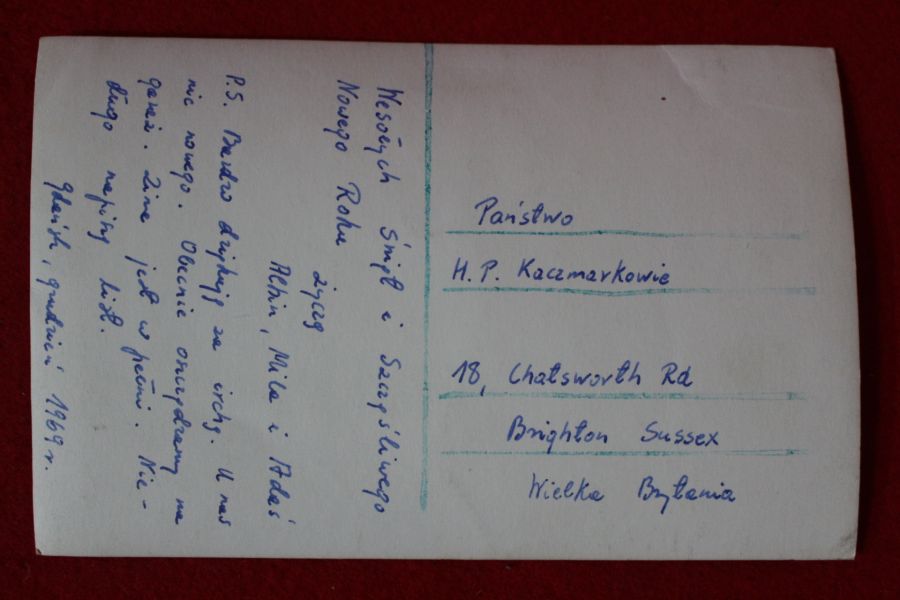 Wesołych Świąt i Szczęśliwego
Nowego Roku
życzą
Albin, Mila i Adaś
P.S. Bardzo dziękuję za irchy. U nas
nic nowego. Obecnie oszczędzamy na
garaż. Zima jest w pełni. Nie-
długo napiszę list.
Gdańsk, grudzień 1969 r.
Państwo
H. P. Kaczmarkowie
18, Chatsworth Rd
Brighton Sussex
Wielka Brytania